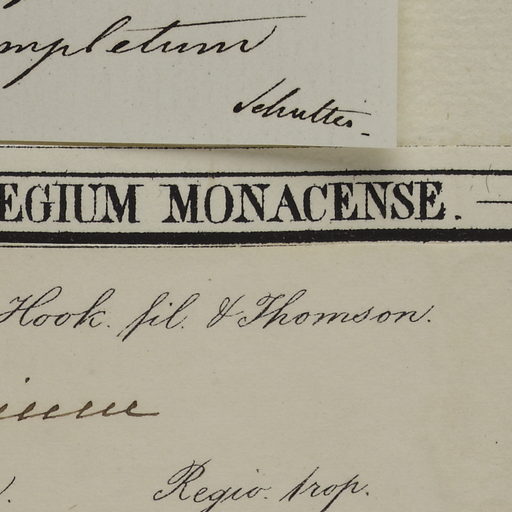 mpletum
Schultes
EGIUM MONACENSE.
Hook. fil. & Thomson.
Regio. trop.